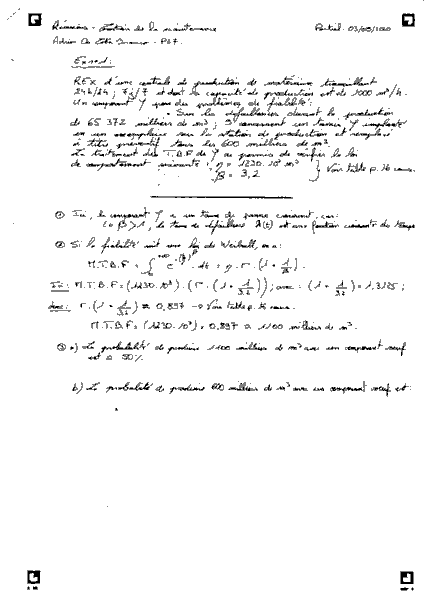 Gestion de la maintenance Partiel - 03/06/2020
Adrien Da
Exo n°1:
REX d'une centrale de production de matériaux travaillant
24h/24; 7j/7 et dont la capacité de production est de 1000 m³/h.
Un composant Y pose des problèmes de fiabilité:
- Sur les défaillances durant la production
de 65 372 milliers de m³; 9 concernent un tamis Y implanté
en un exemplaire sur la station de production et remplacé
à titre préventif tous les 600 milliers de m³.
Le traitement des T.B.F de Y a permis de vérifier la loi
de comportement suivante: η = 1230.10³ m³
β = 3,2
Voir table p.16 cours.
① Ici, le composant Y a un taux de panne croissant, car:
β > 1, le taux de défaillance λ(t) est une fonction croissante du temps
② Si la fiabilité suit une loi de Weibull, on a:
M.T.B.F = ∫ e . dt = η . Γ.(1 + 1/β).
Ici: M.T.B.F = (1230.10³) . (Γ.(1 + 1/3,2)); avec: (1 + 1/3,2) = 1,3125;
donc: Γ.(1 + 1/3,2) ≈ 0,897 → Voir table p.16 cours.
M.T.B.F = (1230.10³) × 0,897 ≈ 1100 milliers de m³.
③ a) La probabilité de produire 1100 milliers de m³ avec un composant neuf
est à 50%
b) La probabilité de produire 600 milliers de m³ avec un composant neuf est: